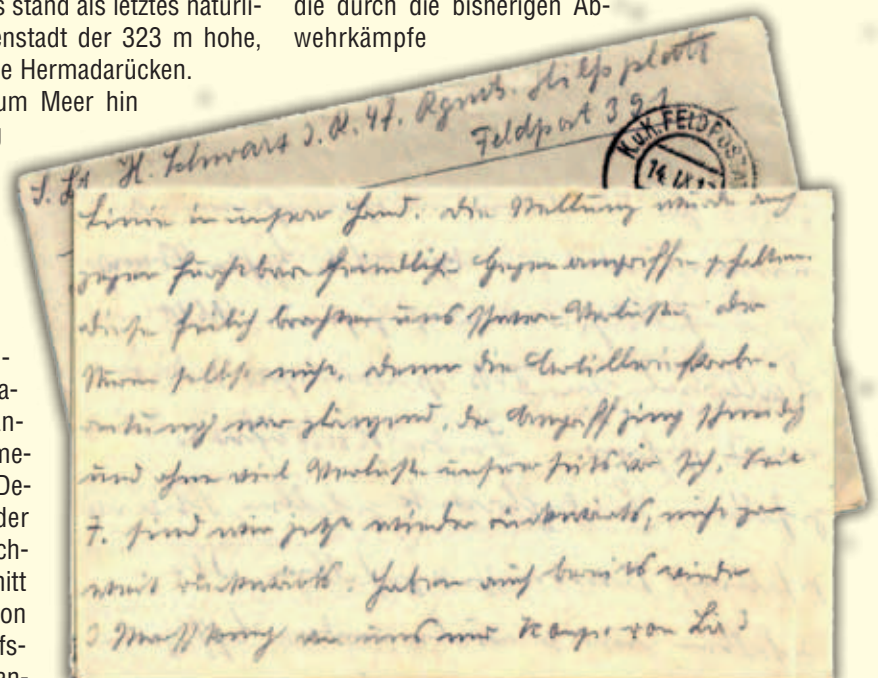 s stand als letztes natürli-
enstadt der 323 m hohe,
e Hermadarücken.
um Meer hin
die durch die bisherigen Ab-
wehrkämpfe
-
a-
n-
ne-
De-
der
ch-
nitt
on
fs-
an-
H. Schwarz I. R. 47. Rgmts. Hilfsplatz
Feldpost 391
K.u.K. FELDPOSTA
14. IX. 17
Linie in unserer Hand. Die Stellung wurde auch
gegen furchtbare feindliche Gegenangriffe gehalten
diese freilich brachten uns schwere Verluste, der
Sturm selbst nicht, denn die Artillerievorbe-
reitung war glänzend, der Angriff ging schneidig
und ohne viel Verluste unserseits vor sich. Seit
7. sind wir jetzt wieder rückwärts, nicht gar
weit rückwärts. Haben auch bereits wieder
von